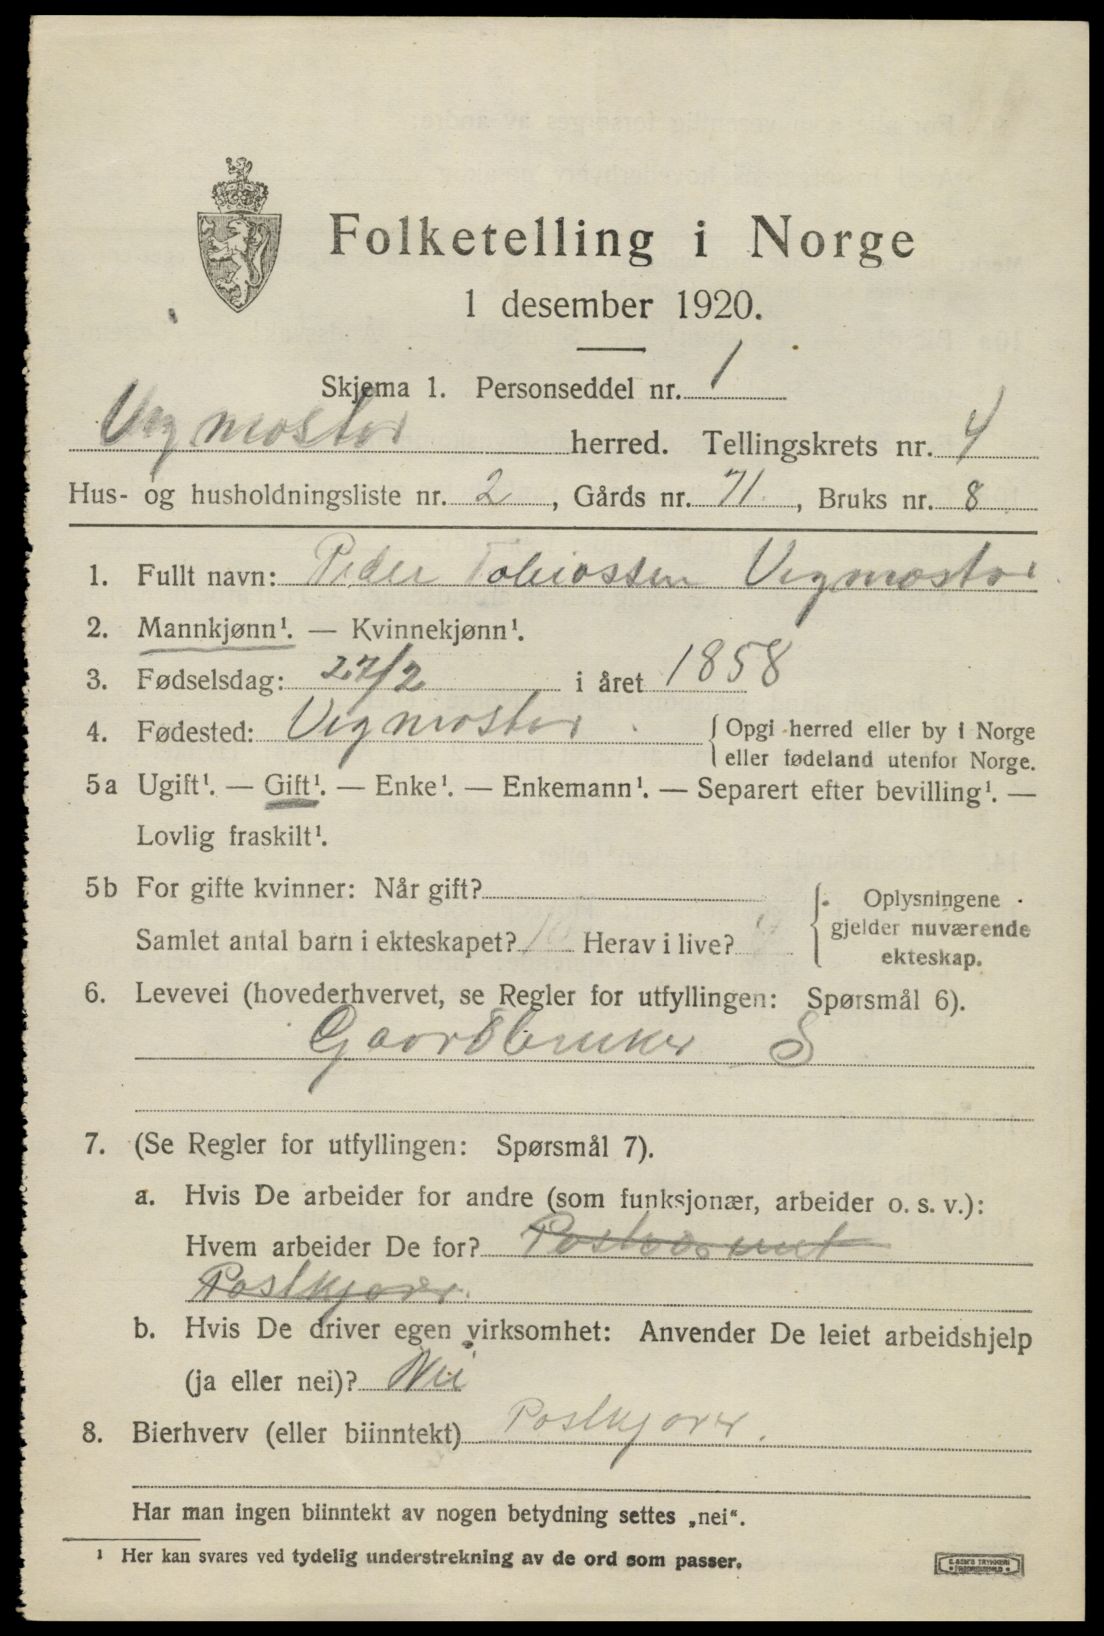 Folketelling i Norge
1 desember 1920.
Skjema 1. Personseddel nr. 1
Vegmostor herred. Tellingskrets nr. 4
Hus- og husholdningsliste nr. 2, Gårds nr. 71, Bruks nr. 8
1. Fullt navn: Peder Tobiassen Vegmostor
2. Mannkjønn¹. — Kvinnekjønn¹.
3. Fødselsdag: 27/2 i året 1858
4. Fødested: Vigmostor
{ Opgi herred eller by i Norge
eller fødeland utenfor Norge.
5a Ugift¹. — Gift¹. — Enke¹. — Enkemann¹. — Separert efter bevilling¹. —
Lovlig fraskilt¹.
5b For gifte kvinner: Når gift?
Samlet antal barn i ekteskapet? 10 Herav i live?
{ Oplysningene
gjelder nuværende
ekteskap.
6. Levevei (hovederhvervet, se Regler for utfyllingen: Spørsmål 6).
Gaardbruker S
7. (Se Regler for utfyllingen: Spørsmål 7).
a. Hvis De arbeider for andre (som funksjonær, arbeider o. s. v.):
Hvem arbeider De for?
Postkjører.
b. Hvis De driver egen virksomhet: Anvender De leiet arbeidshjelp
(ja eller nei)? Nei
8. Bierhverv (eller biinntekt) Postkjører.
Har man ingen biinntekt av nogen betydning settes „nei“.
¹ Her kan svares ved tydelig understrekning av de ord som passer.